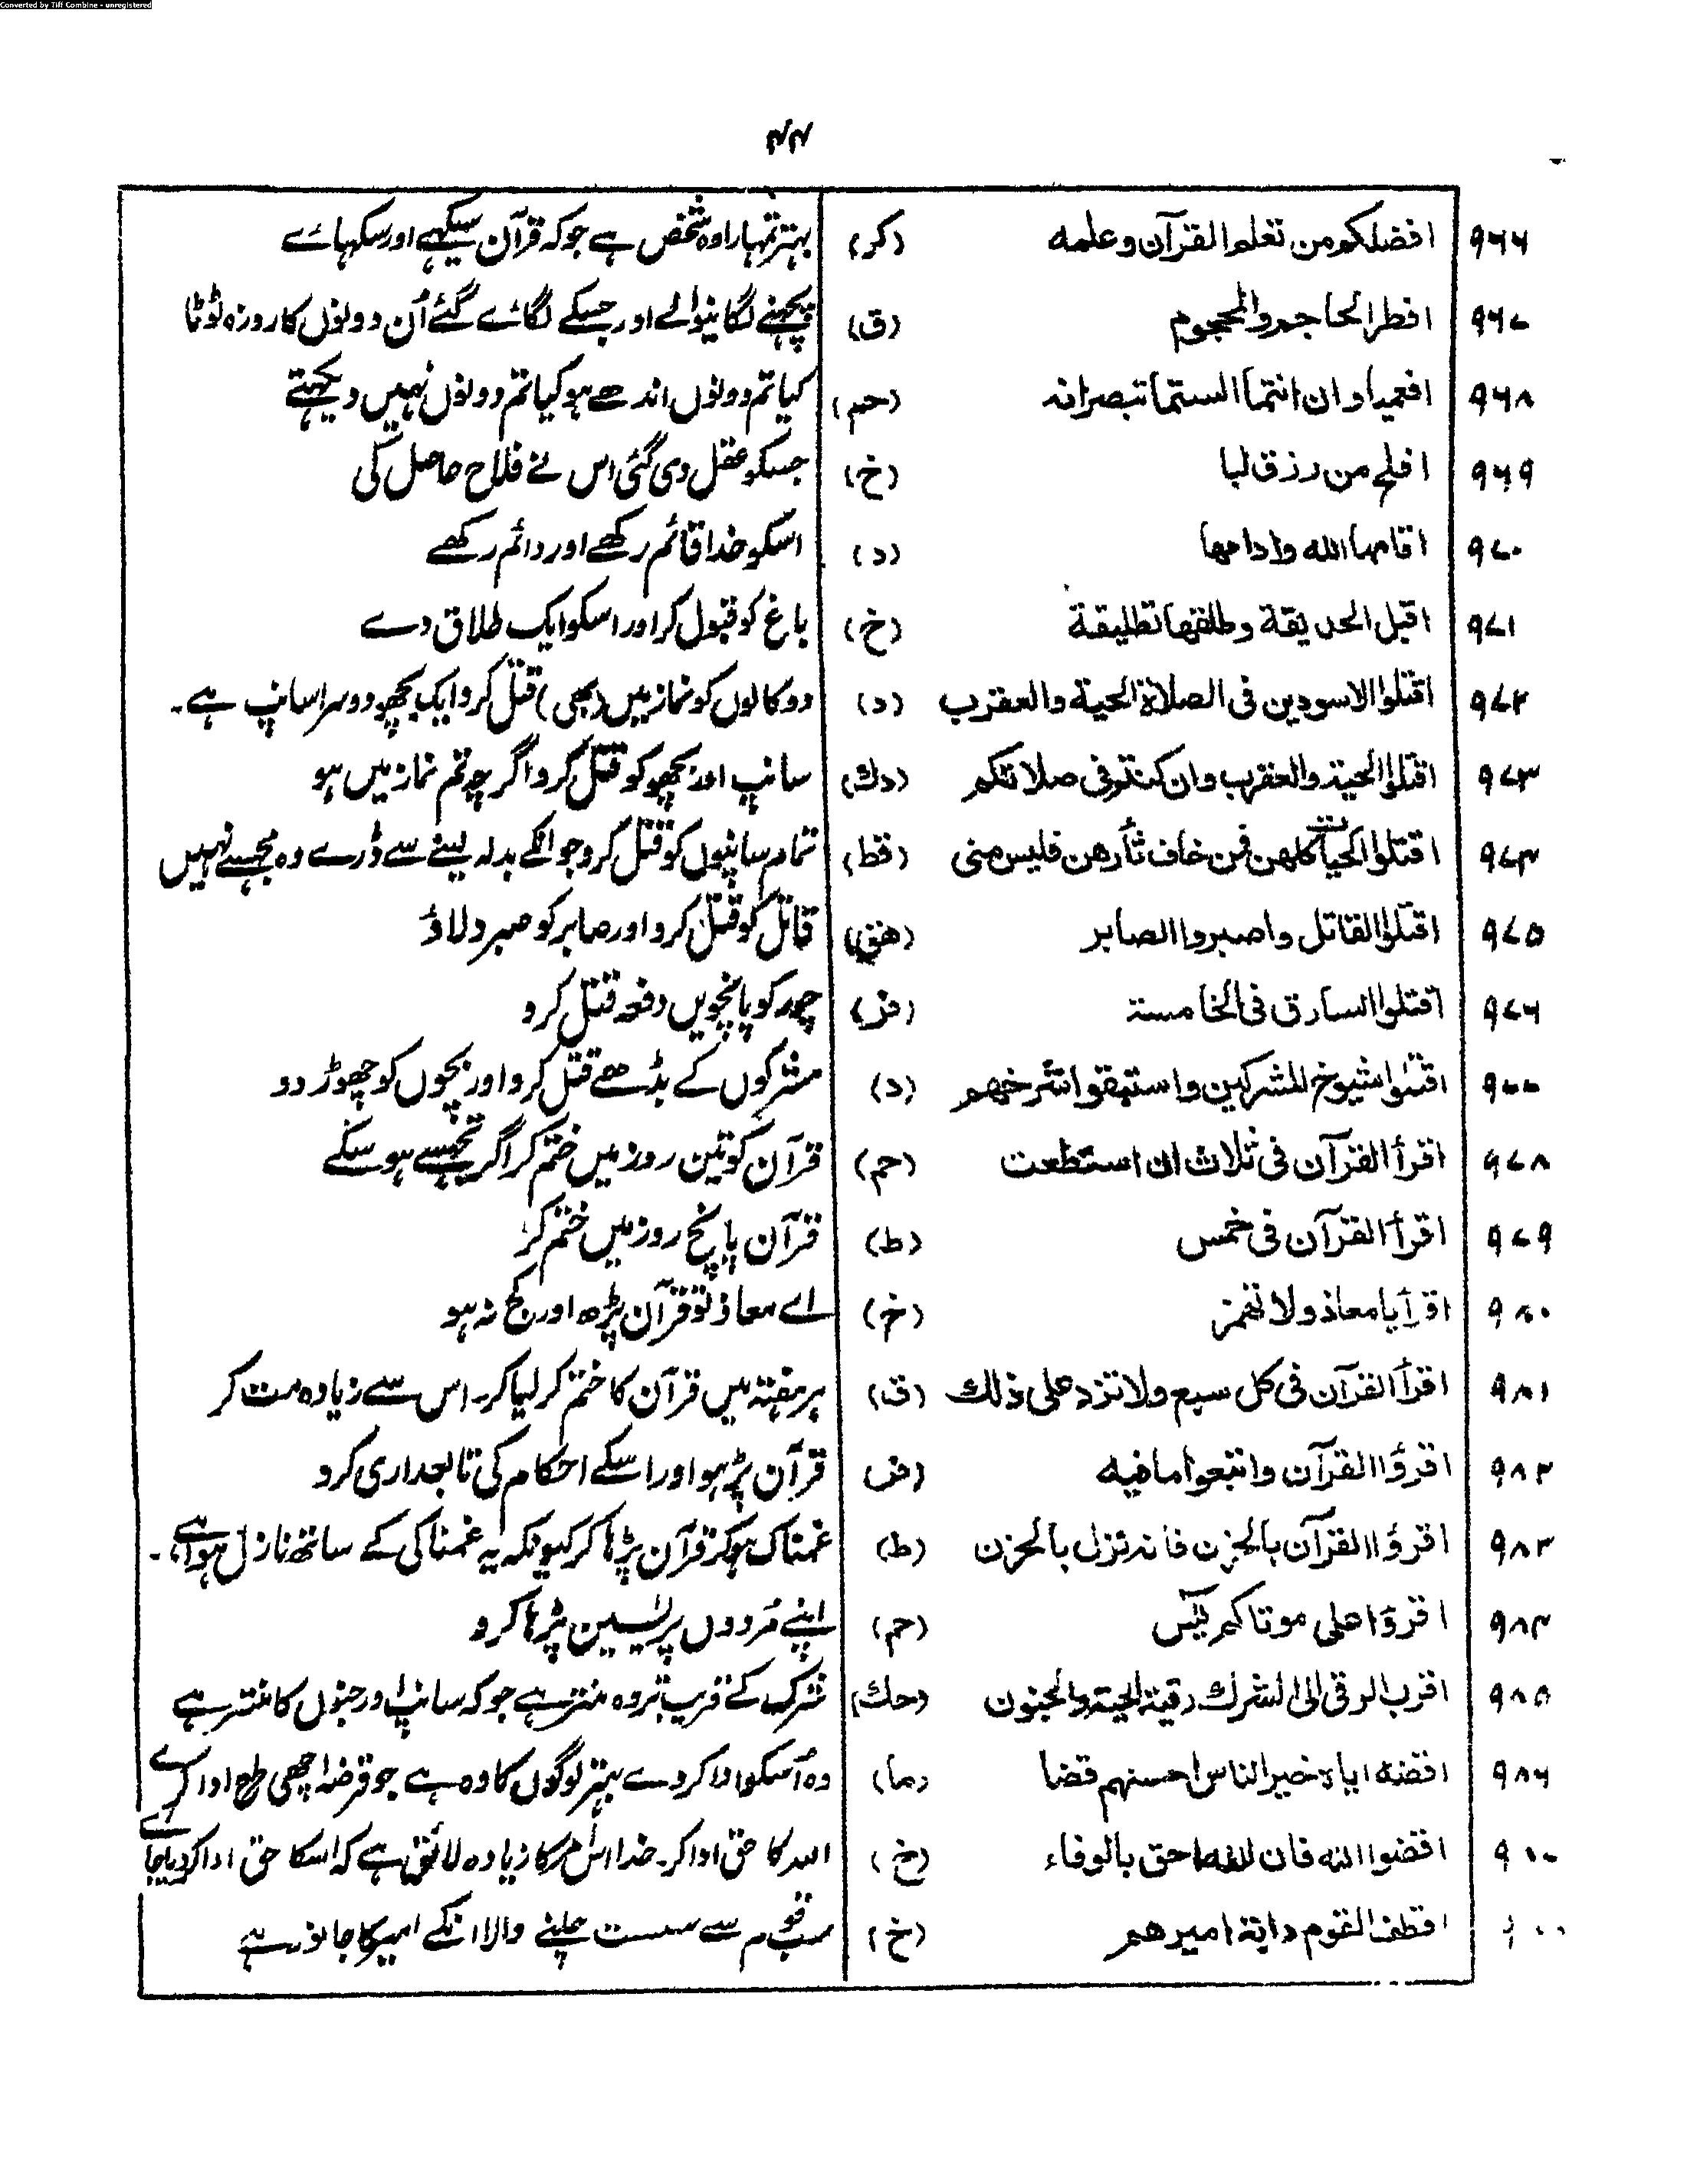 Converted by Tiff Combine - unregistered
۴۴
۹۶۶ افضلکم من تعلم القرآن وعلمه (کر) بہتر تمہارا وہ شخص ہے جو کہ قرآن سیکہے اور سکہائے
۹۶۷ افطر الحاجم والمحجوم (ق) پچھنے لگانیوالے اور جسکے لگائے گئے اُن دونوں کا روزہ ٹوٹا
۹۶۸ افعمیاوان انتما الستما تبصرانه (حم) کیا تم دونوں اندھے ہو کیا تم دونوں نہیں دیکہتے
۹۶۹ افلح من رزق لبا (خ) جسکو عقل دی گئی اس نے فلاح حاصل کی
۹۷۰ اقامها الله وادامها (د) اسکو خدا قائم رکھے اور دائم رکھے
۹۷۱ اقبل الحدیقة وطلقها تطلیقة (خ) باغ کو قبول کر اور اسکو ایک طلاق دے
۹۷۲ اقتلوا الاسودین فی الصلاة الحیة والعقرب (د) دو کالوں کو نماز میں (بھی) قتل کرو ایک بچھو دوسرا سانپ ہے۔
۹۷۳ اقتلوا الحیة والعقرب وان کنتم فی صلاتکم (دك) سانپ اور بچھو کو قتل کرو اگرچہ تم نماز میں ہو
۹۷۴ اقتلوا الحیات کلهن فمن خاف ثأرهن فلیس منی (قط) تمام سانپوں کو قتل کرو جو انکے بدلہ لینے سے ڈرے وہ مجھسے نہیں
۹۷۵ اقتلوا القاتل واصبروا الصابر (هق) قاتل کو قتل کرو اور صابر کو صبر دلاؤ
۹۷۶ اقتلوا السارق فی الخامسة (فر) چور کو پانچویں دفعہ قتل کرو
۹۷۷ اقتلوا شیوخ المشرکین واستبقوا شرخهم (د) مشرکوں کے بڈھے قتل کرو اور بچوں کو چھوڑ دو
۹۷۸ اقرأ القرآن فی ثلاث ان استطعت (حم) قرآن کو تین روز میں ختم کر اگر تجھسے ہو سکے
۹۷۹ اقرأ القرآن فی خمس (ط) قرآن پانچ روز میں ختم کر
۹۸۰ اقرأ یا معاذ ولا (خ) اے معاذ تو قرآن پڑھ اور کج نہ ہو
۹۸۱ اقرأ القرآن فی کل سبع ولا تزد علی ذلك (ق) ہر ہفتہ میں قرآن کا ختم کر لیا کر۔ اس سے زیادہ مت کر
۹۸۲ اقرؤا القرآن واتبعوا ما فیه (فر) قرآن پڑہو اور اسکے احکام کی تابعداری کرو
۹۸۳ اقرؤا القرآن بالحزن فانه نزل بالحزن (ط) غمناک ہوکر قرآن پڑہا کر کیونکہ یہ غمناکی کے ساتھ نازل ہوا ہے۔
۹۸۴ اقرؤا علی موتاکم یٰس (حم) اپنے مُردوں پر یٰسین پڑہا کرو
۹۸۵ اقرب الرقی الی الشرك رقیة الحیة والجنون (حك) شرک کے قریب تر وہ منتر ہے جو کہ سانپ اور جنوں کا منتر ہے
۹۸۶ اقضه ایاه خیر الناس احسنهم قضا (ما) وہ اُسکو ادا کردے بہتر لوگوں کا وہ ہے جو قرضہ اچھی طرح ادا کرے
اقضوا الله فان الله احق بالوفاء (خ) اللہ کا حق ادا کر۔ خدا اس امر کا زیادہ لائق ہے کہ اسکا حق ادا کر دیا جائے
اقطف القوم دابة امیرهم (خ) سب قوم سے سست چلنے والا انکے امیر کا جانور ہے